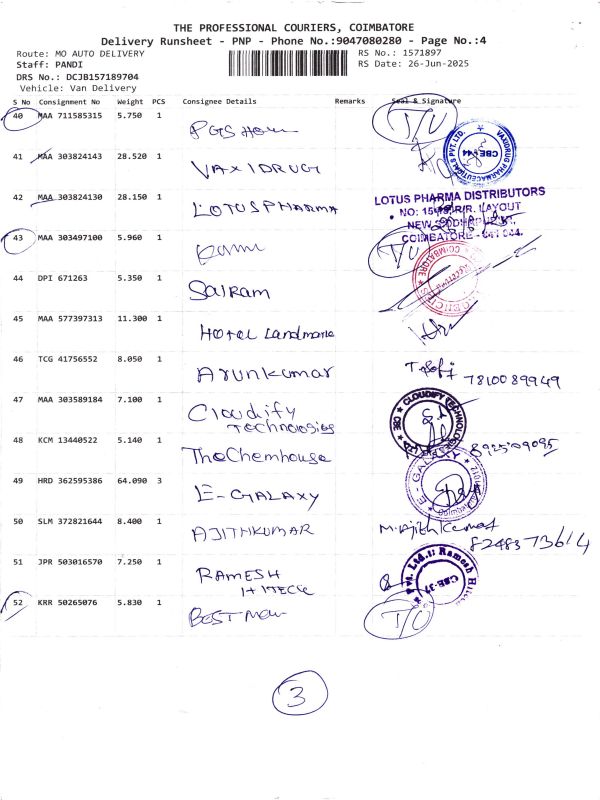 THE PROFESSIONAL COURIERS, COIMBATORE
Delivery Runsheet - PNP - Phone No.:9047080280 - Page No.:4
Route: MO AUTO DELIVERY RS No.: 1571897
Staff: PANDI RS Date: 26-Jun-2025
DRS No.: DCJB157189704
Vehicle: Van Delivery
S No Consignment No Weight PCS Consignee Details Remarks Seal & Signature
40 MAA 711585315 5.750 1 T/U
41 MAA 303824143 28.520 1 VAXIDRUG VAXIDRUG PHARMACEUTICALS PVT. LTD. CBE-44
42 MAA 303824130 28.150 1 LOTUS PHARMA
LOTUS PHARMA DISTRIBUTORS
LAYOUT
COIMBATORE
43 MAA 303497100 5.960 1 T/U
44 DPI 671263 5.350 1 Sairam COIMBATORE
45 MAA 577397313 11.300 1 Hotel Landmark
46 TCG 41756552 8.050 1 Arunkumar 7810089949
47 MAA 303589184 7.100 1 Cloudify Technologies CLOUDIFY
48 KCM 13440522 5.140 1 The Chemhouse 8925709095
49 HRD 362595386 64.090 3 E-GALAXY E-GALAXY
50 SLM 372821644 8.400 1 AJITHKUMAR M.Ajith Kumar
8248373614
51 JPR 503016570 7.250 1 RAMESH HITECH Pvt. Ltd. Ramesh CBE-37
52 KRR 50265076 5.830 1 BEST T/U
3